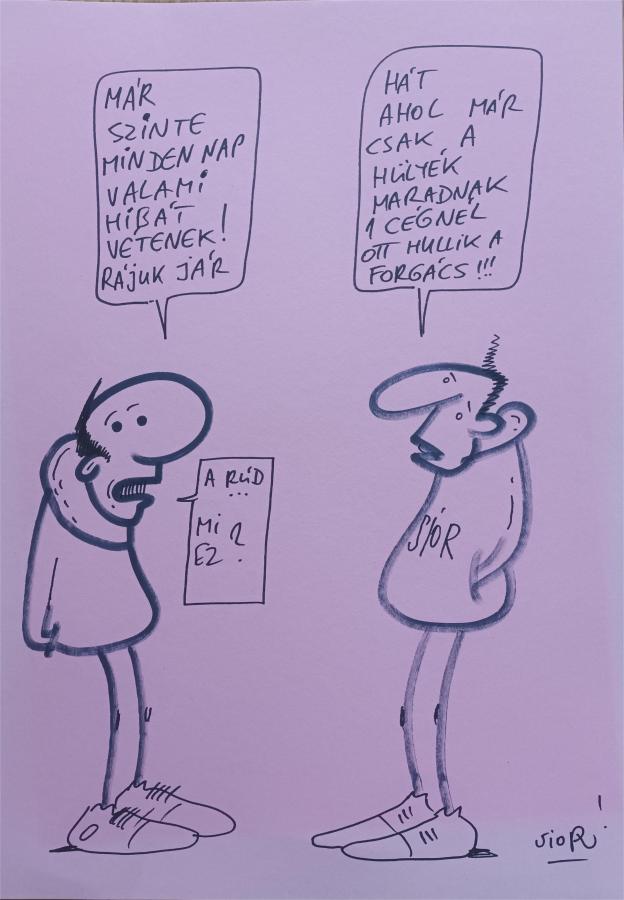 MÁR
SZINTE
MINDEN NAP
VALAMI
HIBÁT
VÉTENEK!
RÁJUK JÁR
A RÚD
...
MI
EZ?
HÁT
AHOL MÁR
CSAK A
HÜLYÉK
MARADNAK
1 CÉGNÉL
OTT HULLIK A
FORGÁCS!!!
SIÓR
SIOR!